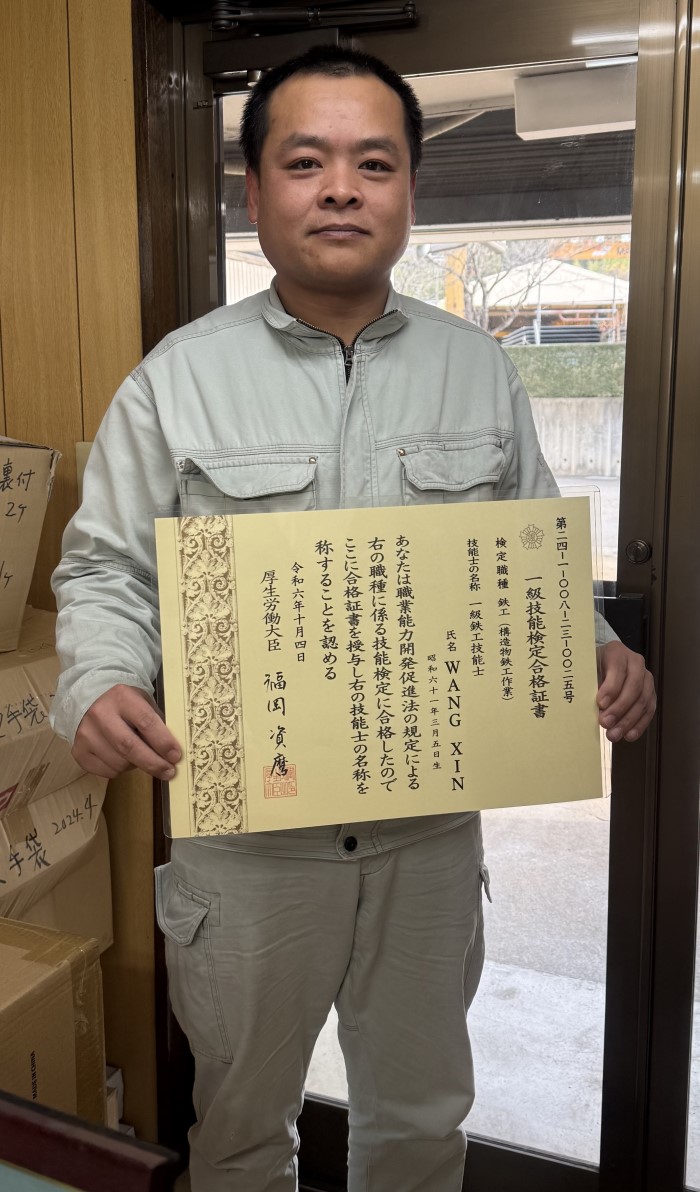 第二四-一-〇〇八-二三-〇〇二五号
一級技能検定合格証書
検定職種 鉄工（構造物鉄工作業）
技能士の名称 一級鉄工技能士
氏名 WANG XIN
昭和六十一年三月五日生
あなたは職業能力開発促進法の規定による
右の職種に係る技能検定に合格したので
ここに合格証書を授与し右の技能士の名称を
称することを認める
令和六年十月四日
厚生労働大臣 福岡資麿
裏付
2ケ
手袋
2024.4
手袋
MADE IN CHINA